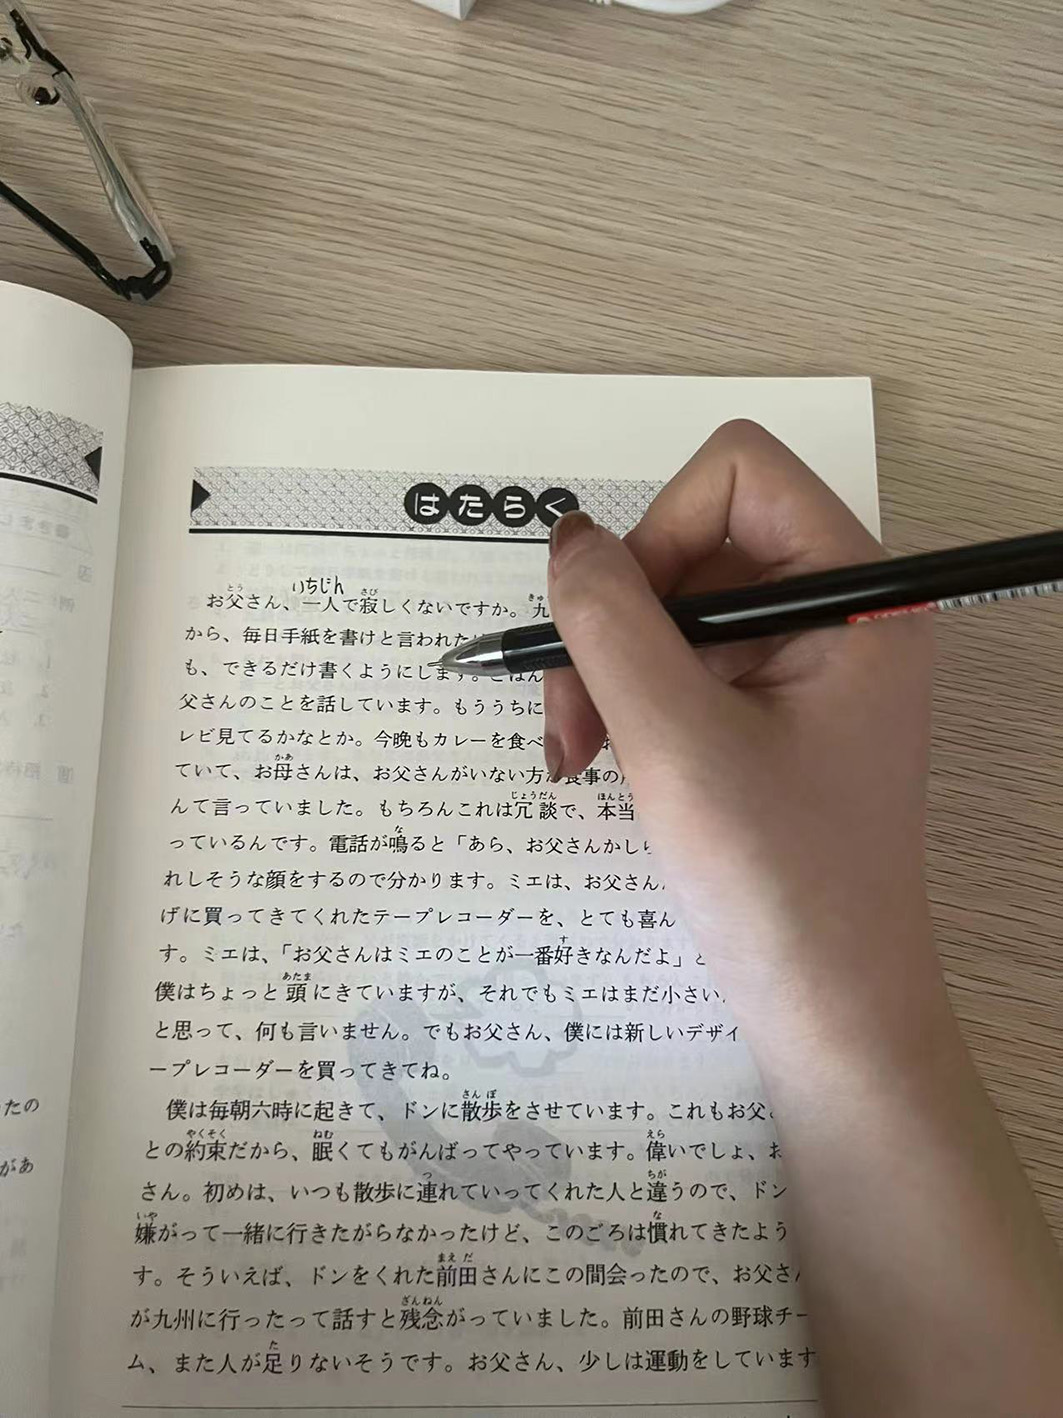 はたらく
いちじん
お父さん、一人で寂しくないですか。九
から、毎日手紙を書けと言われた
も、できるだけ書くようにします。ごはん
父さんのことを話しています。もううちに
レビ見てるかなとか。今晩もカレーを食べ
ていて、お母さんは、お父さんがいない方が食事の
んて言っていました。もちろんこれは冗談で、本当
っているんです。電話が鳴ると「あら、お父さんかしら
れしそうな顔をするので分かります。ミエは、お父さん
げに買ってきてくれたテープレコーダーを、とても喜ん
す。ミエは、「お父さんはミエのことが一番好きなんだよ」と
僕はちょっと頭にきていますが、それでもミエはまだ小さい
と思って、何も言いません。でもお父さん、僕には新しいデザイ
ープレコーダーを買ってきてね。
僕は毎朝六時に起きて、ドンに散歩をさせています。これもお父
との約束だから、眠くてもがんばってやっています。偉いでしょ、お
さん。初めは、いつも散歩に連れていってくれた人と違うので、ドン
嫌がって一緒に行きたがらなかったけど、このごろは慣れてきたよう
す。そういえば、ドンをくれた前田さんにこの間会ったので、お父さん
が九州に行ったって話すと残念がっていました。前田さんの野球チー
ム、また人が足りないそうです。お父さん、少しは運動をしています